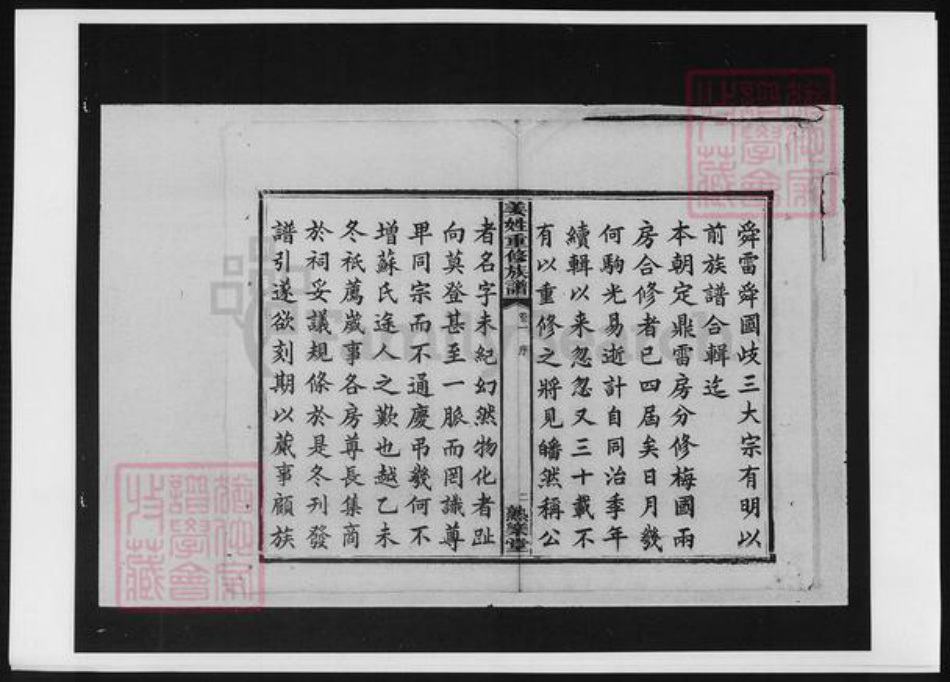 舜雷舜國歧三大宗有明以
前族譜合輯迄
本朝定鼎雷房分修梅國兩
房合修者已四屆矣日月幾
何駒光易逝計自同治季年
續輯以来忽忽又三十載不
有以重修之將見皤然稱公
姜姓重修族譜
卷一 序
二
者名字未紀幻然物化者趾
向莫登甚至一脈而罔識尊
卑同宗而不通慶弔幾何不
增蘇氏途人之歎也越乙未
冬祇薦歲事各房尊長集商
於祠妥議規條於是冬刊發
譜引遂欲刻期以蕆事顧族
FamilySearch